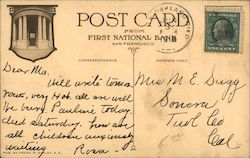 POST CARD
FROM
FIRST NATIONAL BANK
SAN FRANCISCO
CORRESPONDENCE
ADDRESS ONLY
Dear Ma.
Will write tomor
row, very Hot. all are well
Pauline
died Saturday. how are
all children anxiously
waiting
Rosa.
Mrs M. E. Dugg
Sonora
Tuol Co
Cal